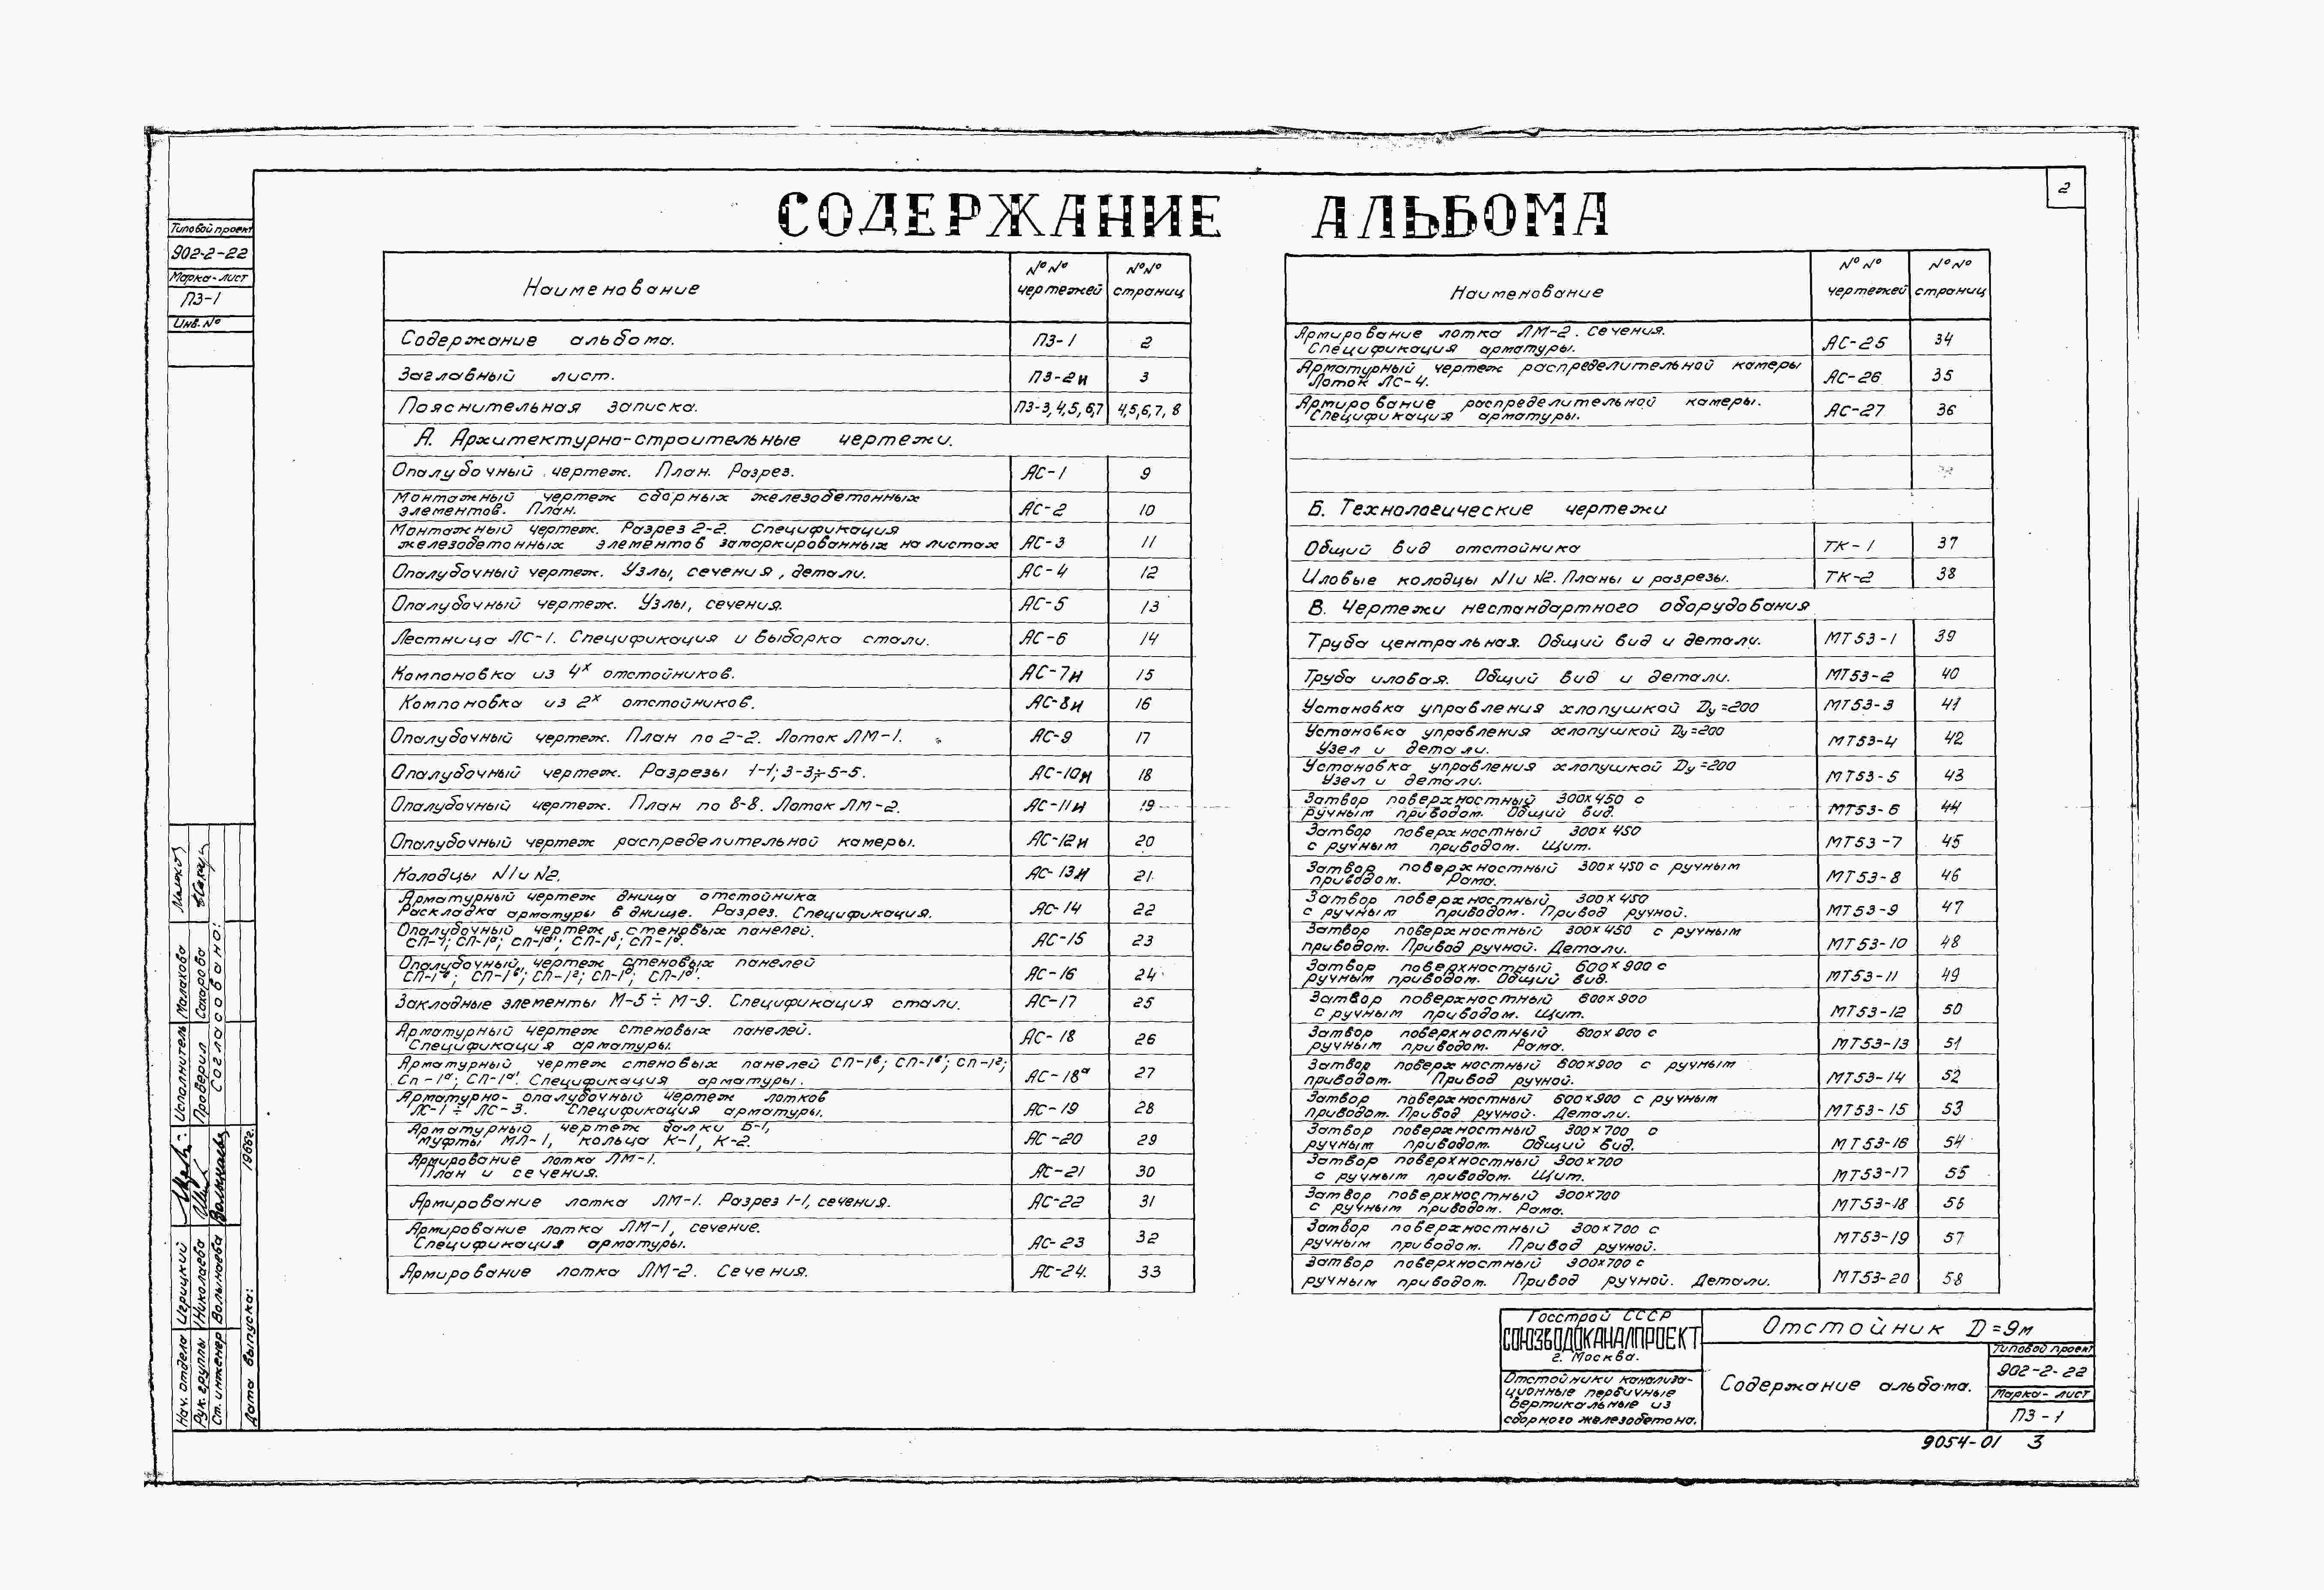 2
СОДЕРЖАНИЕ АЛЬБОМА
Типовой проект
902-2-22
Марка-лист
ПЗ-1
Инв. №
Наименование №№ чертежей №№ страниц
Содержание альбома. ПЗ-1 2
Заглавный лист. ПЗ-2и 3
Пояснительная записка. ПЗ-3,4,5,6,7 4,5,6,7,8
А. Архитектурно-строительные чертежи.
Опалубочный чертеж. План. Разрез. АС-1 9
Монтажный чертеж сборных железобетонных
элементов. План. АС-2 10
Монтажный чертеж. Разрез 2-2. Спецификация
железобетонных элементов замаркированных на листах АС-3 11
Опалубочный чертеж. Узлы, сечения, детали. АС-4 12
Опалубочный чертеж. Узлы, сечения. АС-5 13
Лестница ЛС-1. Спецификация и выборка стали. АС-6 14
Компановка из 4х отстойников. АС-7и 15
Компановка из 2х отстойников. АС-8и 16
Опалубочный чертеж. План по 2-2. Лоток ЛМ-1. АС-9 17
Опалубочный чертеж. Разрезы 1-1; 3-3÷5-5. АС-10и 18
Опалубочный чертеж. План по 8-8. Лоток ЛМ-2. АС-11и 19
Опалубочный чертеж распределительной камеры. АС-12и 20
Колодцы N1 и N2. АС-13и 21
Арматурный чертеж днища отстойника
Раскладка арматуры в днище. Разрез. Спецификация. АС-14 22
Опалубочный чертеж стеновых панелей.
СП-1; СП-1а; СП-1а'; СП-1б; СП-1б'. АС-15 23
Опалубочный чертеж стеновых панелей
АС-16 24
Закладные элементы М-5÷М-9. Спецификация стали. АС-17 25
Арматурный чертеж стеновых панелей.
Спецификация арматуры. АС-18 26
Арматурный чертеж стеновых панелей СП-1в; СП-1в'; СП-1г;
Сп-1д; СП-1д'. Спецификация арматуры. АС-18а 27
Арматурно-опалубочный чертеж лотков
ЛС-1÷ЛС-3. Спецификация арматуры. АС-19 28
Арматурный чертеж балки Б-1,
муфты МЛ-1, кольца К-1, К-2. АС-20 29
Армирование лотка ЛМ-1.
План и сечения. АС-21 30
Армирование лотка ЛМ-1. Разрез 1-1, сечения. АС-22 31
Армирование лотка ЛМ-1, сечение.
Спецификация арматуры. АС-23 32
Армирование лотка ЛМ-2. Сечения. АС-24. 33
Наименование №№ чертежей №№ страниц
Армирование лотка ЛМ-2. Сечения.
Спецификация арматуры. АС-25 34
Арматурный чертеж распределительной камеры
Лоток ЛС-4. АС-26 35
Армирование распределительной камеры.
Спецификация арматуры. АС-27 36
Б. Технологические чертежи
Общий вид отстойника ТК-1 37
Иловые колодцы N1 и N2. Планы и разрезы. ТК-2 38
В. Чертежи нестандартного оборудования
Труба центральная. Общий вид и детали. МТ53-1 39
Труба иловая. Общий вид и детали. МТ53-2 40
Установка управления хлопушкой Dу=200 МТ53-3 41
Установка управления хлопушкой Dу=200
Узел и детали. МТ53-4 42
Установка управления хлопушкой Dу=200
Узел и детали. МТ53-5 43
Затвор поверхностный 300х450 с
ручным приводом. Общий вид. МТ53-6 44
Затвор поверхностный 300х450
с ручным приводом. Щит. МТ53-7 45
Затвор поверхностный 300х450 с ручным
приводом. Рама. МТ53-8 46
Затвор поверхностный 300х450
с ручным приводом. Привод ручной. МТ53-9 47
Затвор поверхностный 300х450 с ручным
приводом. Привод ручной. Детали. МТ53-10 48
Затвор поверхностный 600х900 с
ручным приводом. Общий вид. МТ53-11 49
Затвор поверхностный 600х900
с ручным приводом. Щит. МТ53-12 50
Затвор поверхностный 600х900 с
ручным приводом. Рама. МТ53-13 51
Затвор поверхностный 600х900 с ручным
приводом. Привод ручной. МТ53-14 52
Затвор поверхностный 600х900 с ручным
приводом. Привод ручной. Детали. МТ53-15 53
Затвор поверхностный 300х700 с
ручным приводом. Общий вид. МТ53-16 54
Затвор поверхностный 300х700
с ручным приводом. Щит. МТ53-17 55
Затвор поверхностный 300х700
с ручным приводом. Рама. МТ53-18 56
Затвор поверхностный 300х700 с
ручным приводом. Привод ручной. МТ53-19 57
Затвор поверхностный 300х700 с
ручным приводом. Привод ручной. Детали. МТ53-20 58
Нач. отдела Игрицкий Исполнитель Малахова
Рук. группы Николаева Проверил Сахарова
Ст. инженер Волынцева Согласовано:
Дата выпуска: 1966г.
Госстрой СССР
СОЮЗВОДОКАНАЛПРОЕКТ
г. Москва.
Отстойники канализа-
ционные первичные
вертикальные из
сборного железобетона.
Отстойник D=9м
Содержание альбома.
Типовой проект
902-2-22
Марка-лист
ПЗ-1
9054-01 3